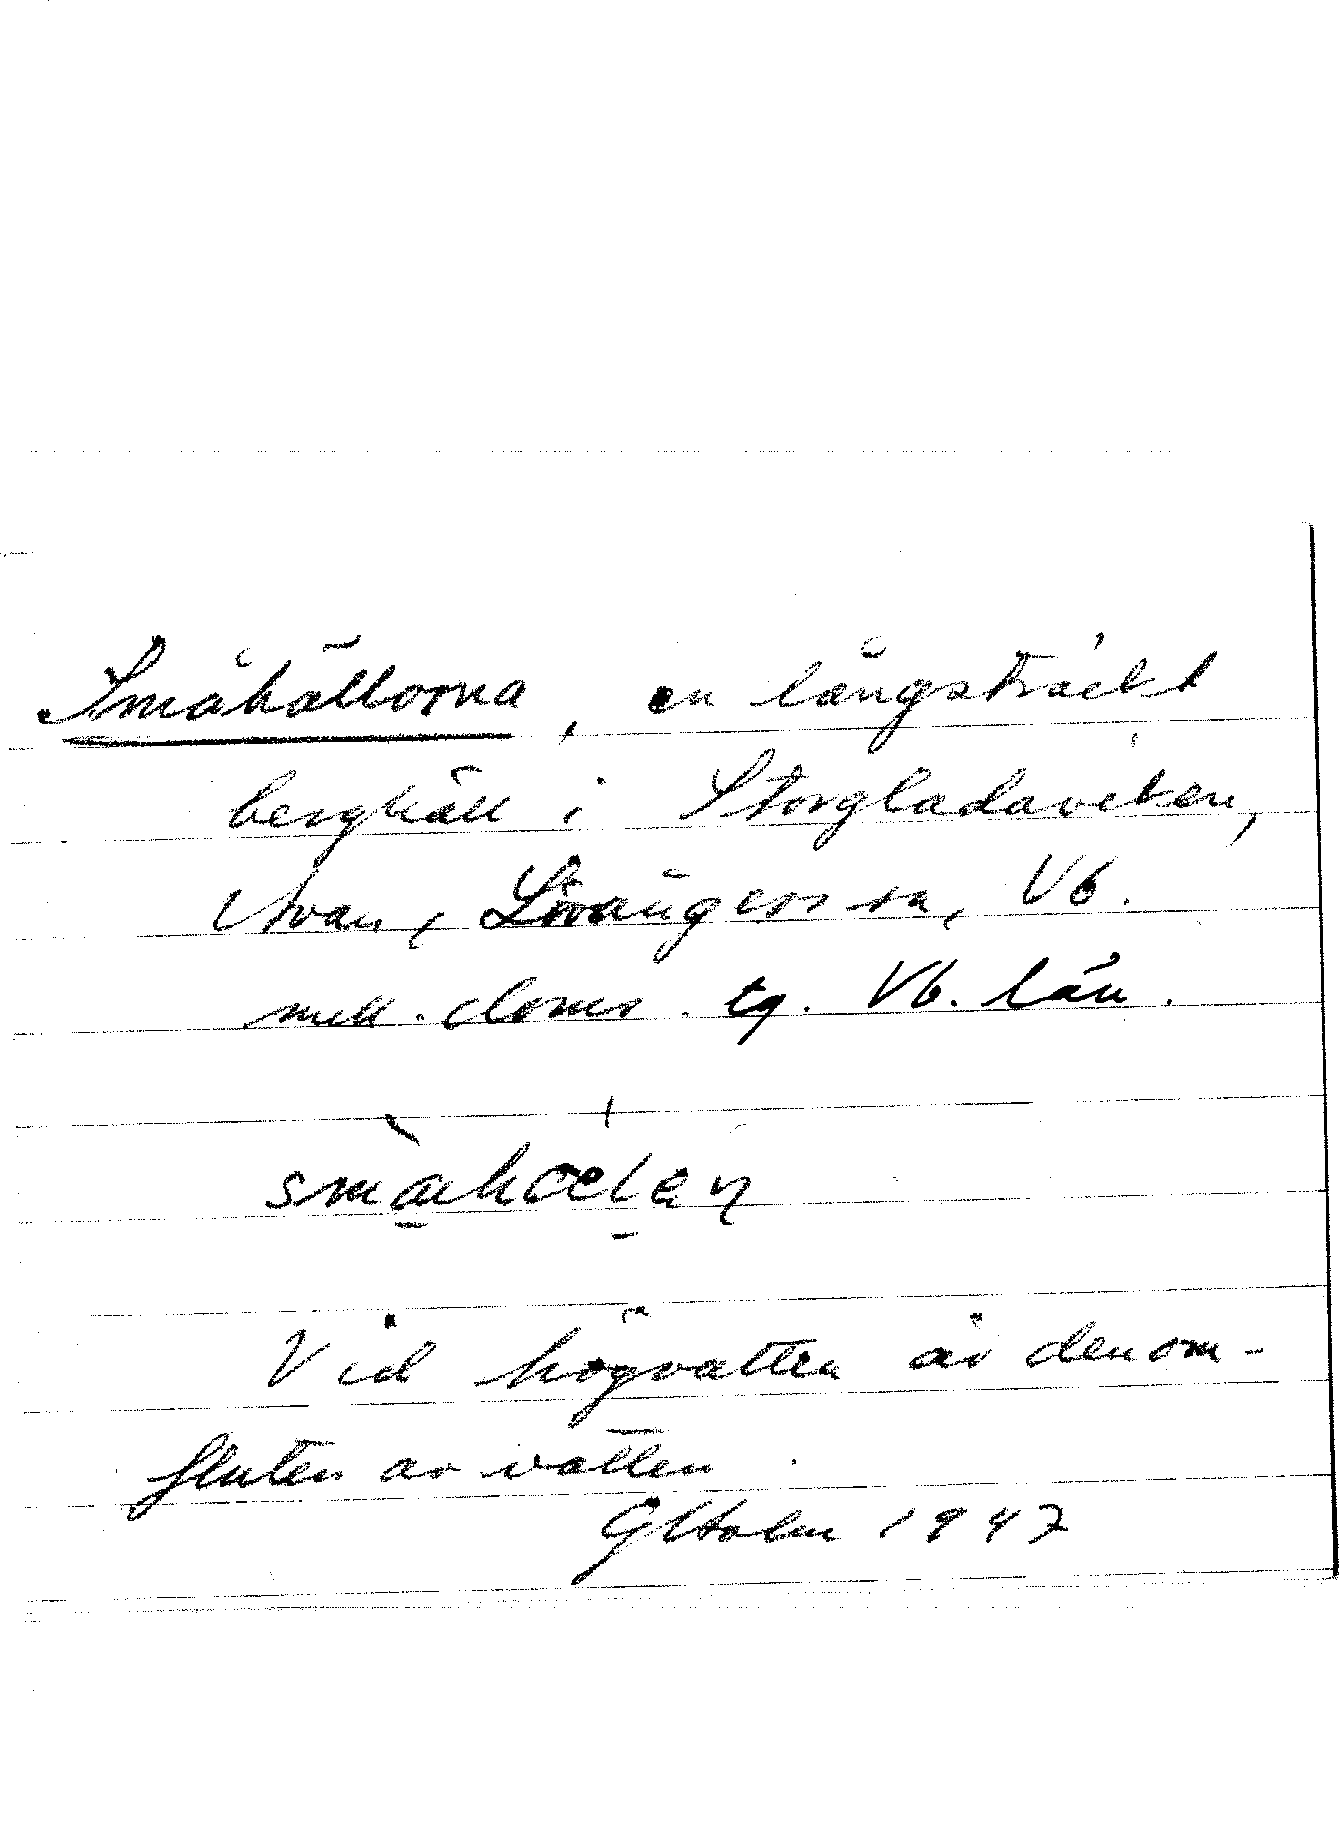 Småhällorna, en långsträckt
berghäll i Storgladaviken,
Avan, Lövångers sn, Vb.
mell. doms. tg. Vb. län.
Vid högvatten är den om-
fluten av vatten.
GHolm 1947